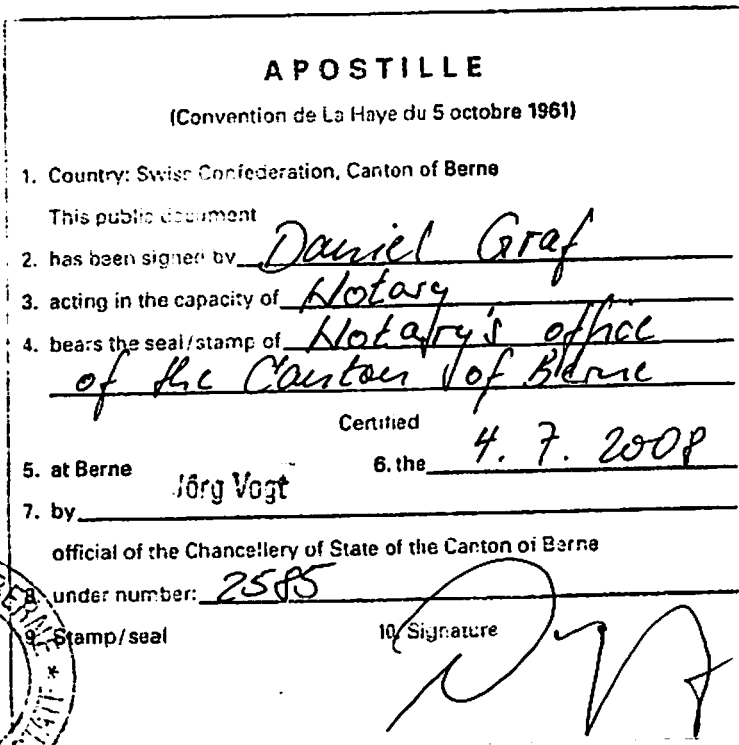 APOSTILLE
(Convention de La Haye du 5 octobre 1961)
1. Country: Swiss Confederation, Canton of Berne
This public document
2. has been signed by Daniel Graf
3. acting in the capacity of Notary
4. bears the seal/stamp of Notary's office
of the Canton of Berne
Certified
5. at Berne 6. the 4. 7. 2008
Jörg Vogt
7. by
official of the Chancellery of State of the Canton of Berne
8. under number: 2585
9. Stamp/seal 10. Signature
BERNE * STATE